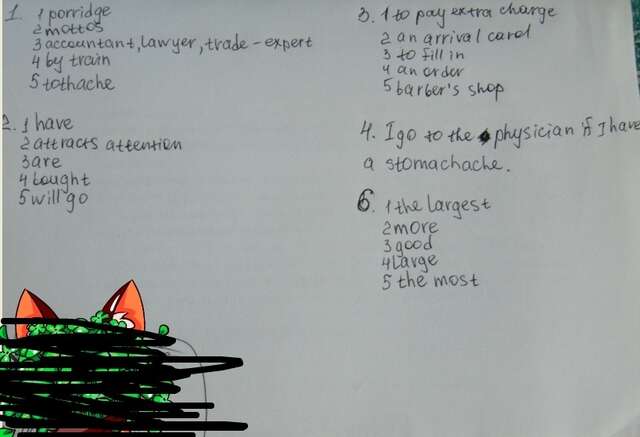 1. 1 porridge
2 mottos
3 accountant, lawyer, trade-expert
4 by train
5 tothache
2. 1 have
2 attracts attention
3 are
4 bought
5 will go
3. 1 to pay extra charge
2 an arrival card
3 to fill in
4 an order
5 barber's shop
4. I go to the physician if I have
a stomachache.
6. 1 the largest
2 more
3 good
4 large
5 the most